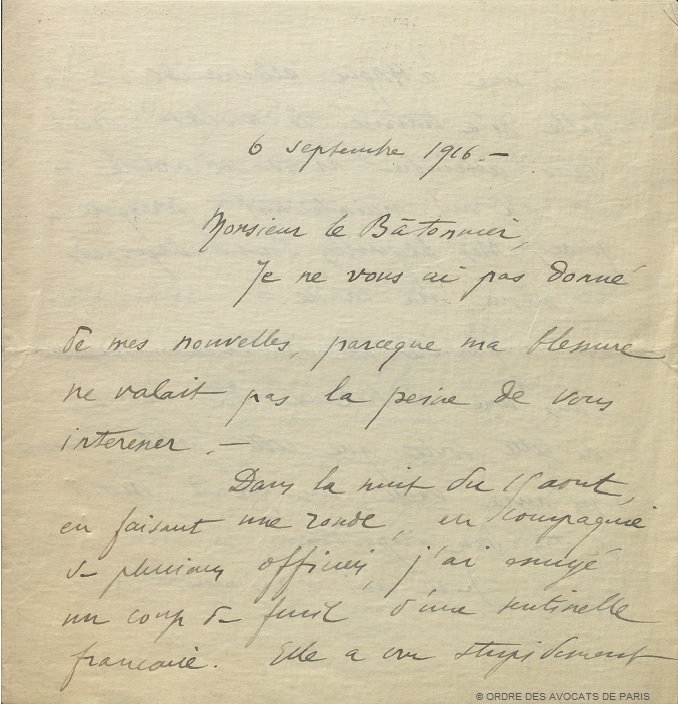 6 septembre 1916. –
Monsieur le Bâtonnier,
Je ne vous ai pas donné
de mes nouvelles, parceque ma blessure
ne valait pas la peine de vous
interesser. –
Dans la nuit du 15 aout,
en faisant une ronde, en compagnie
de plusieurs officiers, j'ai essuyé
un coup de fusil d'une sentinelle
francaise. Elle a cru stupidement
© ORDRE DES AVOCATS DE PARIS